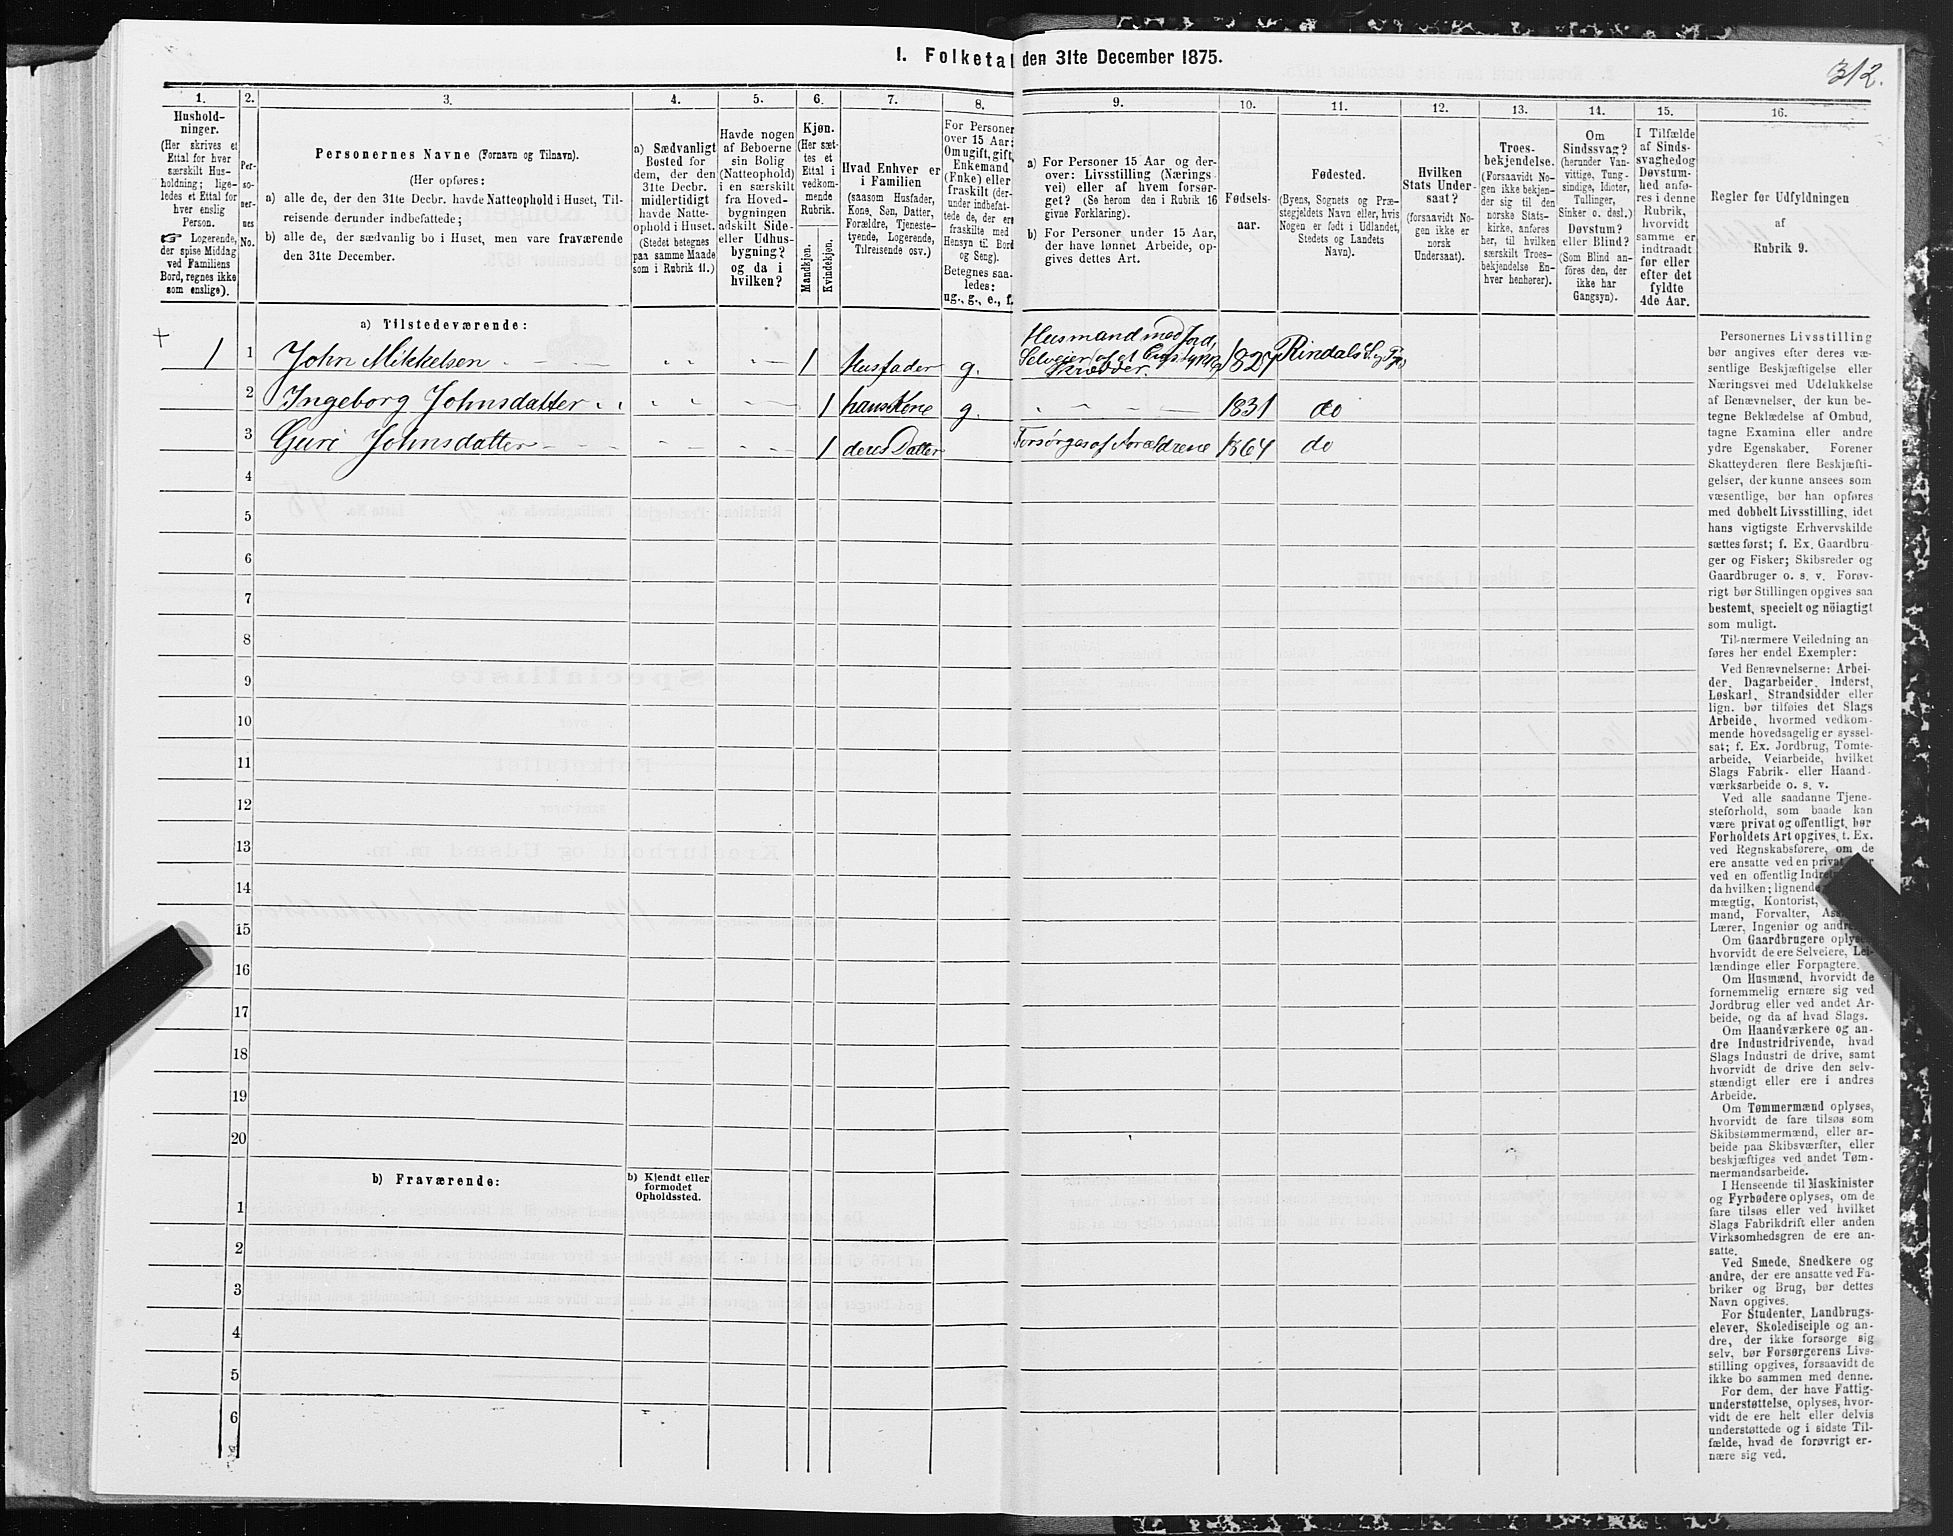 I. Folketal den 31te December 1875.
312.
1. 2. 3. 4. 5. 6. 7. 8. 9. 10. 11. 12. 13. 14. 15. 16.
Hushold-
ninger.
(Her skrives et
Ettal for hver
særskilt Hus-
holdning; lige-
ledes et Ettal for
hver enslig
Person.
☞ Logerende,
der spise Middag
ved Familiens
Bord, regnes ikke
som enslige).
Per-
so-
ner-
nes
No.
Personernes Navne (Fornavn og Tilnavn).
(Her opføres:
a) alle de, der den 31te Decbr. havde Natteophold i Huset, Til-
reisende derunder indbefattede;
b) alle de, der sædvanlig bo i Huset, men vare fraværende
den 31te December.
a) Sædvanligt
Bosted for
dem, der den
31te Decbr.
midlertidigt
havde Natte-
ophold i Huset.
(Stedet betegnes
paa samme Maade
som i Rubrik 11.)
Havde nogen
af Beboerne
sin Bolig
(Natteophold)
i en særskilt
fra Hoved-
bygningen
adskilt Side-
eller Udhus-
bygning?
og da i
hvilken?
Kjøn.
(Her sæt-
tes et
Ettal i
vedkom-
mende
Rubrik.
Mandkjøn.
Kvindekjøn.
Hvad Enhver er
i Familien
(saasom Husfader,
Kone, Søn, Datter,
Forældre, Tjeneste-
tyende, Logerende,
Tilreisende osv.)
For Personer
over 15 Aar:
Om ugift, gift,
Enkemand
(Enke) eller
fraskilt (der-
under indbefat-
tede de, der ere
fraskilte med
Hensyn til Bord
og Seng).
Betegnes saa-
ledes:
ug., g., e., f.
a) For Personer 15 Aar og der-
over: Livsstilling (Nærings-
vei) eller af hvem forsør-
get? (Se herom den i Rubrik 16
givne Forklaring).
b) For Personer under 15 Aar,
der have lønnet Arbeide, op-
gives dettes Art.
Fødsels-
aar.
Fødested.
(Byens, Sognets og Præ-
stegjeldets Navn eller, hvis
Nogen er født i Udlandet,
Stedets og Landets
Navn).
Hvilken
Stats Under-
saat?
(forsaavidt No-
gen ikke er
norsk
Undersaat).
Troes-
bekjendelse.
(Forsaavidt No-
gen ikke bekjen-
der sig til den
norske Stats-
kirke, anføres
her, til hvilken
særskilt Troes-
bekjendelse En-
hver henhører).
Om
Sindssvag?
(herunder Van-
vittige, Tung-
sindige, Idioter,
Tullinger,
Sinker o. desl.)
Døvstum?
eller Blind?
(Som Blind an-
føres den, der
ikke har
Gangsyn).
I Tilfælde
af Sinds-
svaghed og
Døvstum-
hed anfø-
res i denne
Rubrik,
hvorvidt
samme er
indtraadt
før eller
efter det
fyldte
4de Aar.
Regler for Udfyldningen
af
Rubrik 9.
a) Tilstedeværende:
+ 1 1 John Mikkelsen 1 Husfader g. Husmand med Jord, Selveier
Skrædder. 1827 Rindals
2 Ingeborg Johnsdatter 1 hans Kone g. 1831 do
3 Guri Johnsdatter 1 deres Datter Forsørges af Forældrene 1864 do
4
5
6
7
8
9
10
11
12
13
14
15
16
17
18
19
20
b) Fraværende:
b) Kjendt eller
formodet
Opholdssted.
1
2
3
4
5
6
Personernes Livsstilling
bør angives efter deres væ-
sentlige Beskjæftigelse eller
Næringsvei med Udelukkelse
af Benævnelser, der kun be-
tegne Beklædelse af Ombud,
tagne Examina eller andre
ydre Egenskaber. Forener
Skatteyderen flere Beskjæfti-
gelser, der kunne ansees som
væsentlige, bør han opføres
med dobbelt Livsstilling, idet
hans vigtigste Erhvervskilde
sættes først; f. Ex. Gaardbru-
ger og Fisker; Skibsreder og
Gaardbruger o. s. v. Forøv-
rigt bør Stillingen opgives saa
bestemt, specielt og nöiagtigt
som muligt.
Til nærmere Veiledning an
føres her endel Exempler:
Ved Benævnelserne: Arbei-
der, Dagarbeider, Inderst,
Løskarl, Strandsidder eller
lign. bør tilføies det Slags
Arbeide, hvormed vedkom-
mende hovedsagelig er syssel-
sat; f. Ex. Jordbrug, Tomte-
arbeide, Veiarbeide, hvilket
Slags Fabrik- eller Haand-
værksarbeide o. s. v.
Ved alle saadanne Tjene-
steforhold, som baade kan
være privat og offentligt, bør
Forholdets Art opgives, t. Ex.
ved Regnskabsførere, om de
ere ansatte ved en privat
ved en offentlig
da hvilken; lignende
mægtig, Kontorist,
mand, Forvalter,
Lærer, Ingeniør og
Om Gaardbrugere
hvorvidt de ere Selveiere, Lei-
lændinge eller Forpagtere.
Om Husmænd, hvorvidt de
fornemmelig ernære sig ved
Jordbrug eller ved andet Ar-
beide, og da af hvad Slags.
Om Haandværkere og an-
dre Industridrivende, hvad
Slags Industri de drive, samt
hvorvidt de drive den selv-
stændigt eller ere i andres
Arbeide.
Om Tømmermænd oplyses,
hvorvidt de fare tilsøs som
Skibstømmermænd, eller ar-
beide paa Skibsværfter, eller
beskjæftiges ved andet Tøm-
mermandsarbeide.
I Henseende til Maskinister
og Fyrbødere oplyses, om de
fare tilsøs eller ved hvilket
Slags Fabrikdrift eller anden
Virksomhedsgren de ere an-
satte.
Ved Smede, Snedkere og
andre, der ere ansatte ved Fa-
briker og Brug, bør dettes
Navn opgives.
For Studenter, Landbrugs-
elever, Skoledisciple og an-
dre, der ikke forsørge sig
selv, bør Forsørgerens Livs-
stilling opgives, forsaavidt de
ikke bo sammen med denne.
For dem, der have Fattig-
understøttelse, oplyses, hvor-
vidt de ere helt eller delvis
understøttede og i sidste Til-
fælde, hvad de forøvrigt er-
nære sig ved.